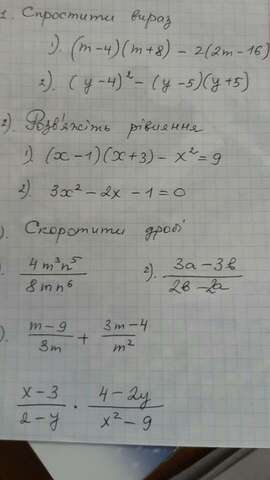 1. Спростити вираз
1). (m-4)(m+8) - 2(2m-16)
2). (y-4)² - (y-5)(y+5)
2) Розв'яжіть рівняння
1). (x-1)(x+3) - x² = 9
2). 3x² - 2x - 1 = 0
). Скоротити дробі
). 4m³n⁵ / 8mn⁶ 2). 3a-3b / 2b-2a
). m-9 / 3m + 3m-4 / m²
x-3 / 2-y · 4-2y / x²-9